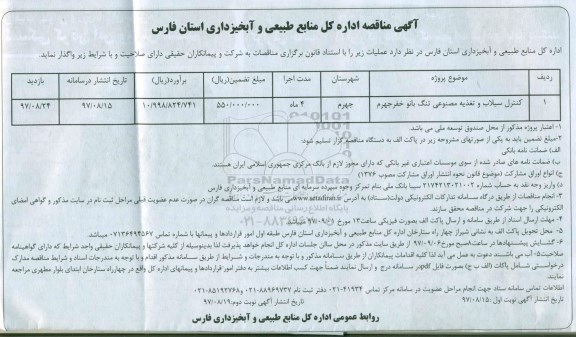 آگهی مناقصه اداره کل منابع طبیعی و آبخیزداری استان فارس
اداره کل منابع طبیعی و آبخیزداری استان فارس در نظر دارد عملیات زیر را با استناد قانون برگزاری مناقصات به شرکت و پیمانکاران حقیقی دارای صلاحیت و با شرایط زیر واگذار نماید.
ردیف موضوع پروژه شهرستان مدت اجرا مبلغ تضمین(ریال) برآورد(ریال) تاریخ انتشار درسامانه بازدید
۱ کنترل سیلاب و تغذیه مصنوعی تنگ بانو خفرجهرم جهرم ۴ ماه ۵۵۰/۰۰۰/۰۰۰ ۱۰/۹۹۸/۸۲۴/۷۴۱ ۹۷/۰۸/۱۵ ۹۷/۰۸/۲۴
۱- اعتبار پروژه مذکور از محل صندوق توسعه ملی می باشد.
۲-مبلغ تضمین باید به یکی از صورتهای مشروحه زیر در پاکت الف به دستگاه مناقصه گزار تسلیم شود:
الف) ضمانت نامه بانکی
ب) ضمانت نامه های صادر شده از سوی موسسات اعتباری غیر بانکی که دارای مجوز لازم از بانک مرکزی جمهوری اسلامی ایران هستند.
ج) انواع اوراق مشارکت (موضوع قانون نحوه انتشار اوراق مشارکت مصوب ۱۳۷۶)
د) واریز وجه نقد به حساب شماره ۲۱۷۴۲۱۳۰۲۱۰۰۲ سیبا بانک ملی بنام تمرکز وجوه سپرده سرمایه ای منابع طبیعی و آبخیزداری فارس
۳- انجام مناقصات از طریق درگاه سامانه تدارکات الکترونیکی دولت(ستاد) به آدرس www.setadiran.ir می باشد و لازم است مناقصه گران در صورت عدم عضویت قبلی مراحل ثبت نام در سایت مذکور و گواهی امضای
الکترونیکی را جهت شرکت در مناقصه محقق سازند.
۴- مهلت ارسال اسناد از طریق سامانه و ارسال پاکت الف بصورت فیزیکی ساعت۱۳ مورخ ۹۷/۰۹/۵ می باشد
۵- محل تحویل پاکت الف به نشانی شیراز چهار راه ستارخان اداره کل منابع طبیعی و آبخیزداری استان فارس طبقه اول امور قراردادها و پیمانها با شماره تماس ۰۷۱۳۶۴۹۴۵۶۷ میباشد
۶- گشایش پیشنهادها در ساعت۸صبح مورخ۹۷/۰۹/۰۶ از طریق سایت مذکور در محل سالن جلسات اداره کل انجام خواهد پذیرفت لذا بدینوسیله از کلیه شرکتها و پیمانکاران حقیقی واجد شرایط که دارای گواهینامه
صلاحیت۵ آب می باشند دعوت به عمل می آید لذا کلیه اقدامات پیمانکاران از طریق سامانه مذکور و با توجه به مندرجات و شرایط از طریق سامانه مذکور اقدام و با توجه به مندرجات اسناد و شرایط مناقصه مدارک
درخواستی شامل پاکات (الف ب ج) بصورت فایل pdf درسامانه درج و ارسال نمایند ضمناً جهت کسب اطلاعات بیشتر به دفتر امور قراردادها و پیمانهای اداره کل واقع در چهارراه ستارخان ابتدای بلوار مطهری مراجعه
نمایند.
اطلاعات تماس سامانه ستاد جهت انجام مراحل عضویت در سامانه مرکز تماس ۰۲۱-۴۱۹۳۴ دفتر ثبت نام ۰۲۱-۸۸۹۶۹۷۳۷ و۰۲۱-۸۵۱۹۳۷۶۸
تاریخ انتشار آگهی نوبت اول:۹۷/۰۸/۱۵ تاریخ انتشار آگهی نوبت دوم:۹۷/۰۸/۱۹
روابط عمومی اداره کل منابع طبیعی و آبخیزداری فارس